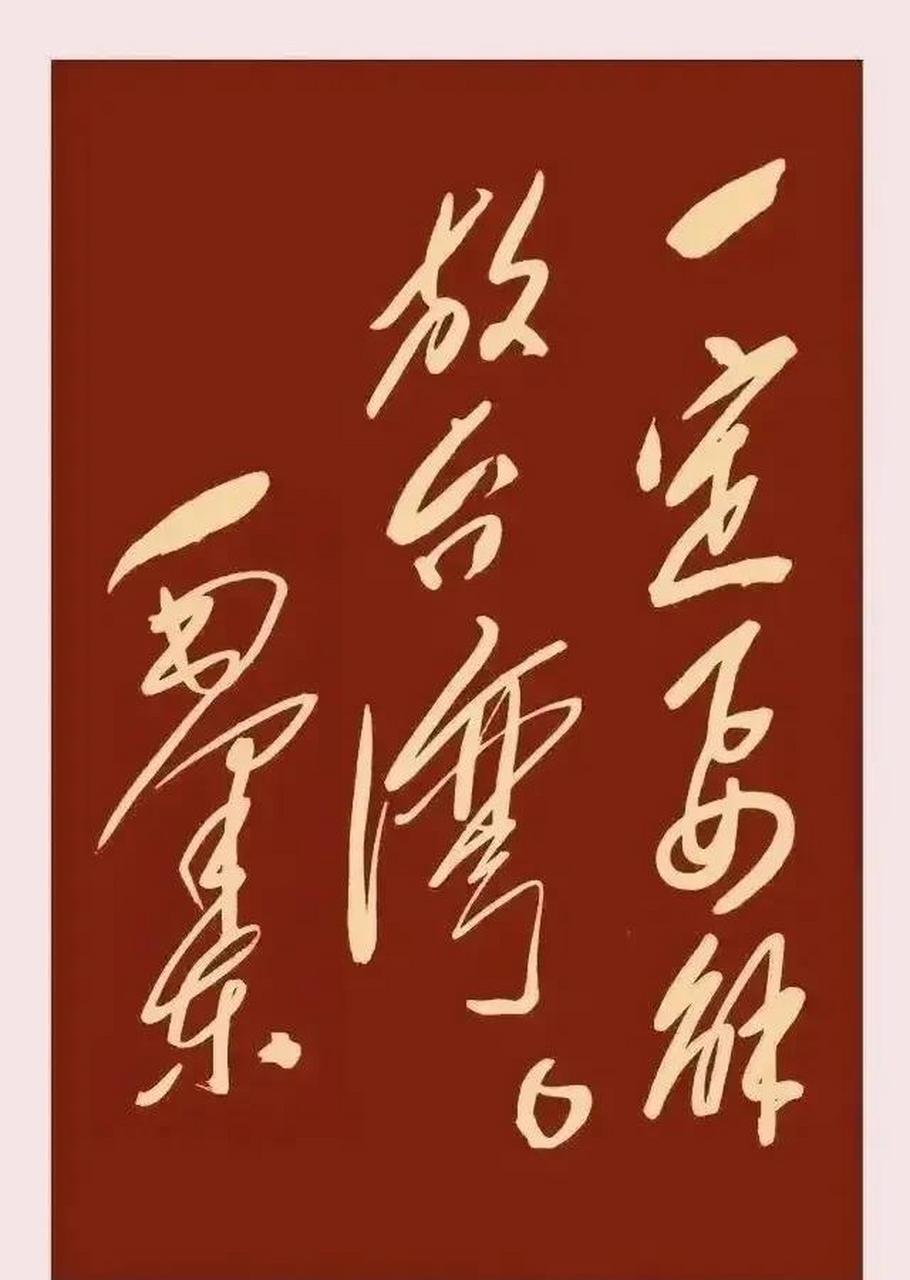 一定要解
放台湾。
毛泽东